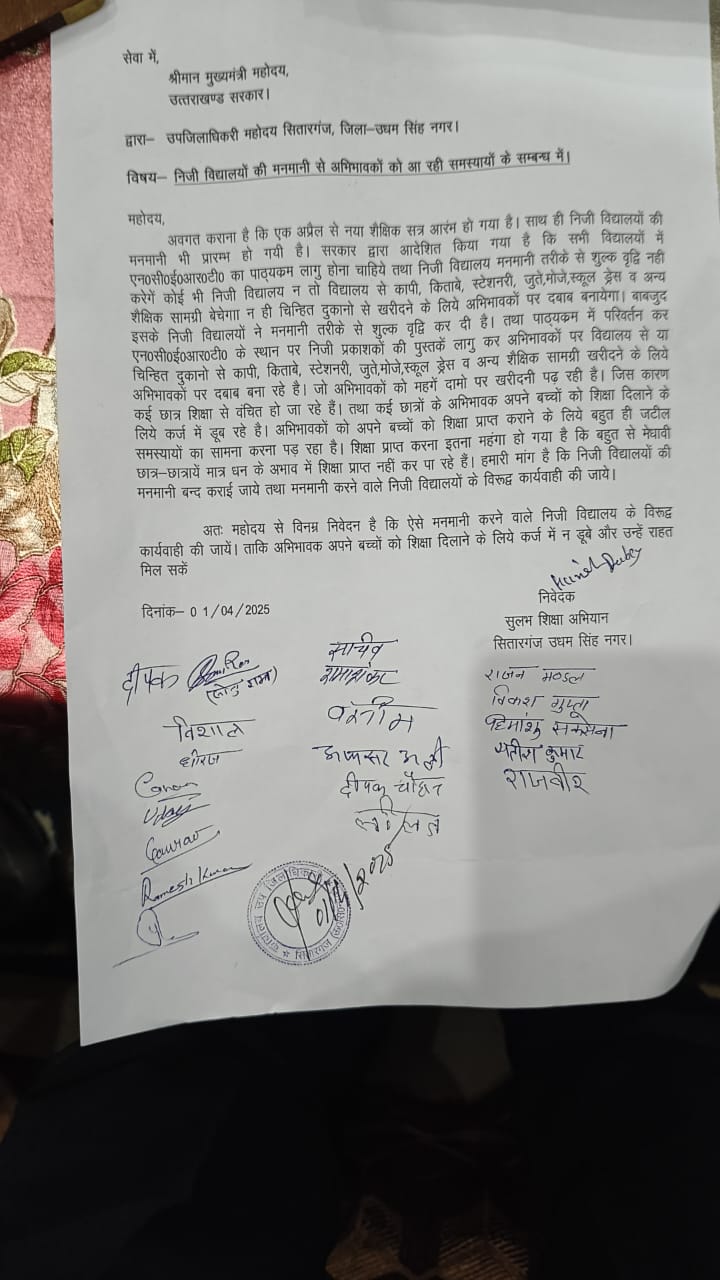 सेवा में,
श्रीमान मुख्यमंत्री महोदय,
उत्तराखण्ड सरकार।
द्वारा– उपजिलाधिकरी महोदय सितारगंज, जिला–उधम सिंह नगर।
विषय– निजी विद्यालयों की मनमानी से अभिभावकों को आ रही समस्यायों के सम्बन्ध में।
महोदय,
अवगत कराना है कि एक अप्रैल से नया शैक्षिक सत्र आरंभ हो गया है। साथ ही निजी विद्यालयों की
मनमानी भी प्रारम्भ हो गयी है। सरकार द्वारा आदेशित किया गया है कि सभी विद्यालयों में
एन०सी०ई०आर०टी० का पाठ्यकम लागु होना चाहिये तथा निजी विद्यालय मनमानी तरीके से शुल्क वृद्वि नही
करेगें कोई भी निजी विद्यालय न तो विद्यालय से कापी, किताबे, स्टेशनरी, जुते,मोजे,स्कूल ड्रेस व अन्य
शैक्षिक सामग्री बेचेगा न ही चिन्हित दुकानो से खरीदने के लिये अभिभावकों पर दबाब बनायेगा। बाबजुद
इसके निजी विद्यालयों ने मनमानी तरीके से शुल्क वृद्वि कर दी है। तथा पाठ्यकम में परिवर्तन कर
एन०सी०ई०आर०टी० के स्थान पर निजी प्रकाशकों की पुस्तकें लागु कर अभिभावकों पर विद्यालय से या
चिन्हित दुकानो से कापी, किताबे, स्टेशनरी, जुते,मोजे,स्कूल ड्रेस व अन्य शैक्षिक सामग्री खरीदने के लिये
अभिभावकों पर दबाब बना रहे है। जो अभिभावकों को महगें दामो पर खरीदनी पढ़ रही है। जिस कारण
कई छात्र शिक्षा से वंचित हो जा रहे हैं। तथा कई छात्रों के अभिभावक अपने बच्चों को शिक्षा दिलाने के
लिये कर्ज में डूब रहे है। अभिभावकों को अपने बच्चों को शिक्षा प्राप्त कराने के लिये बहुत ही जटील
समस्यायों का सामना करना पड़ रहा है। शिक्षा प्राप्त करना इतना महंगा हो गया है कि बहुत से मेधावी
छात्र–छात्रायें मात्र धन के अभाव में शिक्षा प्राप्त नहीं कर पा रहे हैं। हमारी मांग है कि निजी विद्यालयों की
मनमानी बन्द कराई जाये तथा मनमानी करने वाले निजी विद्यालयों के विरूद्व कार्यवाही की जाये।
अतः महोदय से विनम्र निवेदन है कि ऐसे मनमानी करने वाले निजी विद्यालय के विरूद्व
कार्यवाही की जायें। ताकि अभिभावक अपने बच्चों को शिक्षा दिलाने के लिये कर्ज में न डूबे और उन्हें राहत
मिल सकें
दिनांक– 01/04/2025
निवेदक
सुलभ शिक्षा अभियान
सितारगंज उधम सिंह नगर।
दीपक
सचिव
राजन मण्डल
विकाश गुप्ता
विशाल
हिमांशु सक्सेना
धीरज
दीपक चौहान
राजवीर
Uday
ललित
Gaurav
Ramesh Kumar
01/4/2025